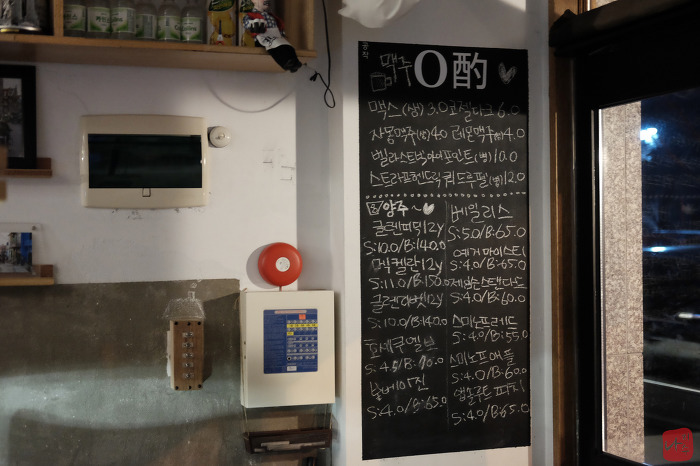 공작
맥주 O酌
맥스(생) 3.0 코젤다크 6.0
자몽맥주(생) 4.0 레몬맥주(생) 4.0
벨라스트 인디아 포인트(병) 10.0
스트라프 헨드릭 쿼드루펠(병) 12.0
양주~
글렌피딕 12y
S:10.0/B:140.0
멕켈란 12y
S:11.0/B:150.0
글렌리벳 12y
S:10.0/B:140.0
호세쿠엘보
S:4.5/B:70.0
봄베이진
S:4.0/B:65.0
베일리스
S:5.0/B:65.0
예거마이스터
S:4.0/B:65.0
제임슨스탠다드
S:4.0/B:60.0
스미노프레드
S:4.0/B:55.0
스미노프애플
S:4.0/B:60.0
앱솔루트 피치
S:4.0/B:65.0